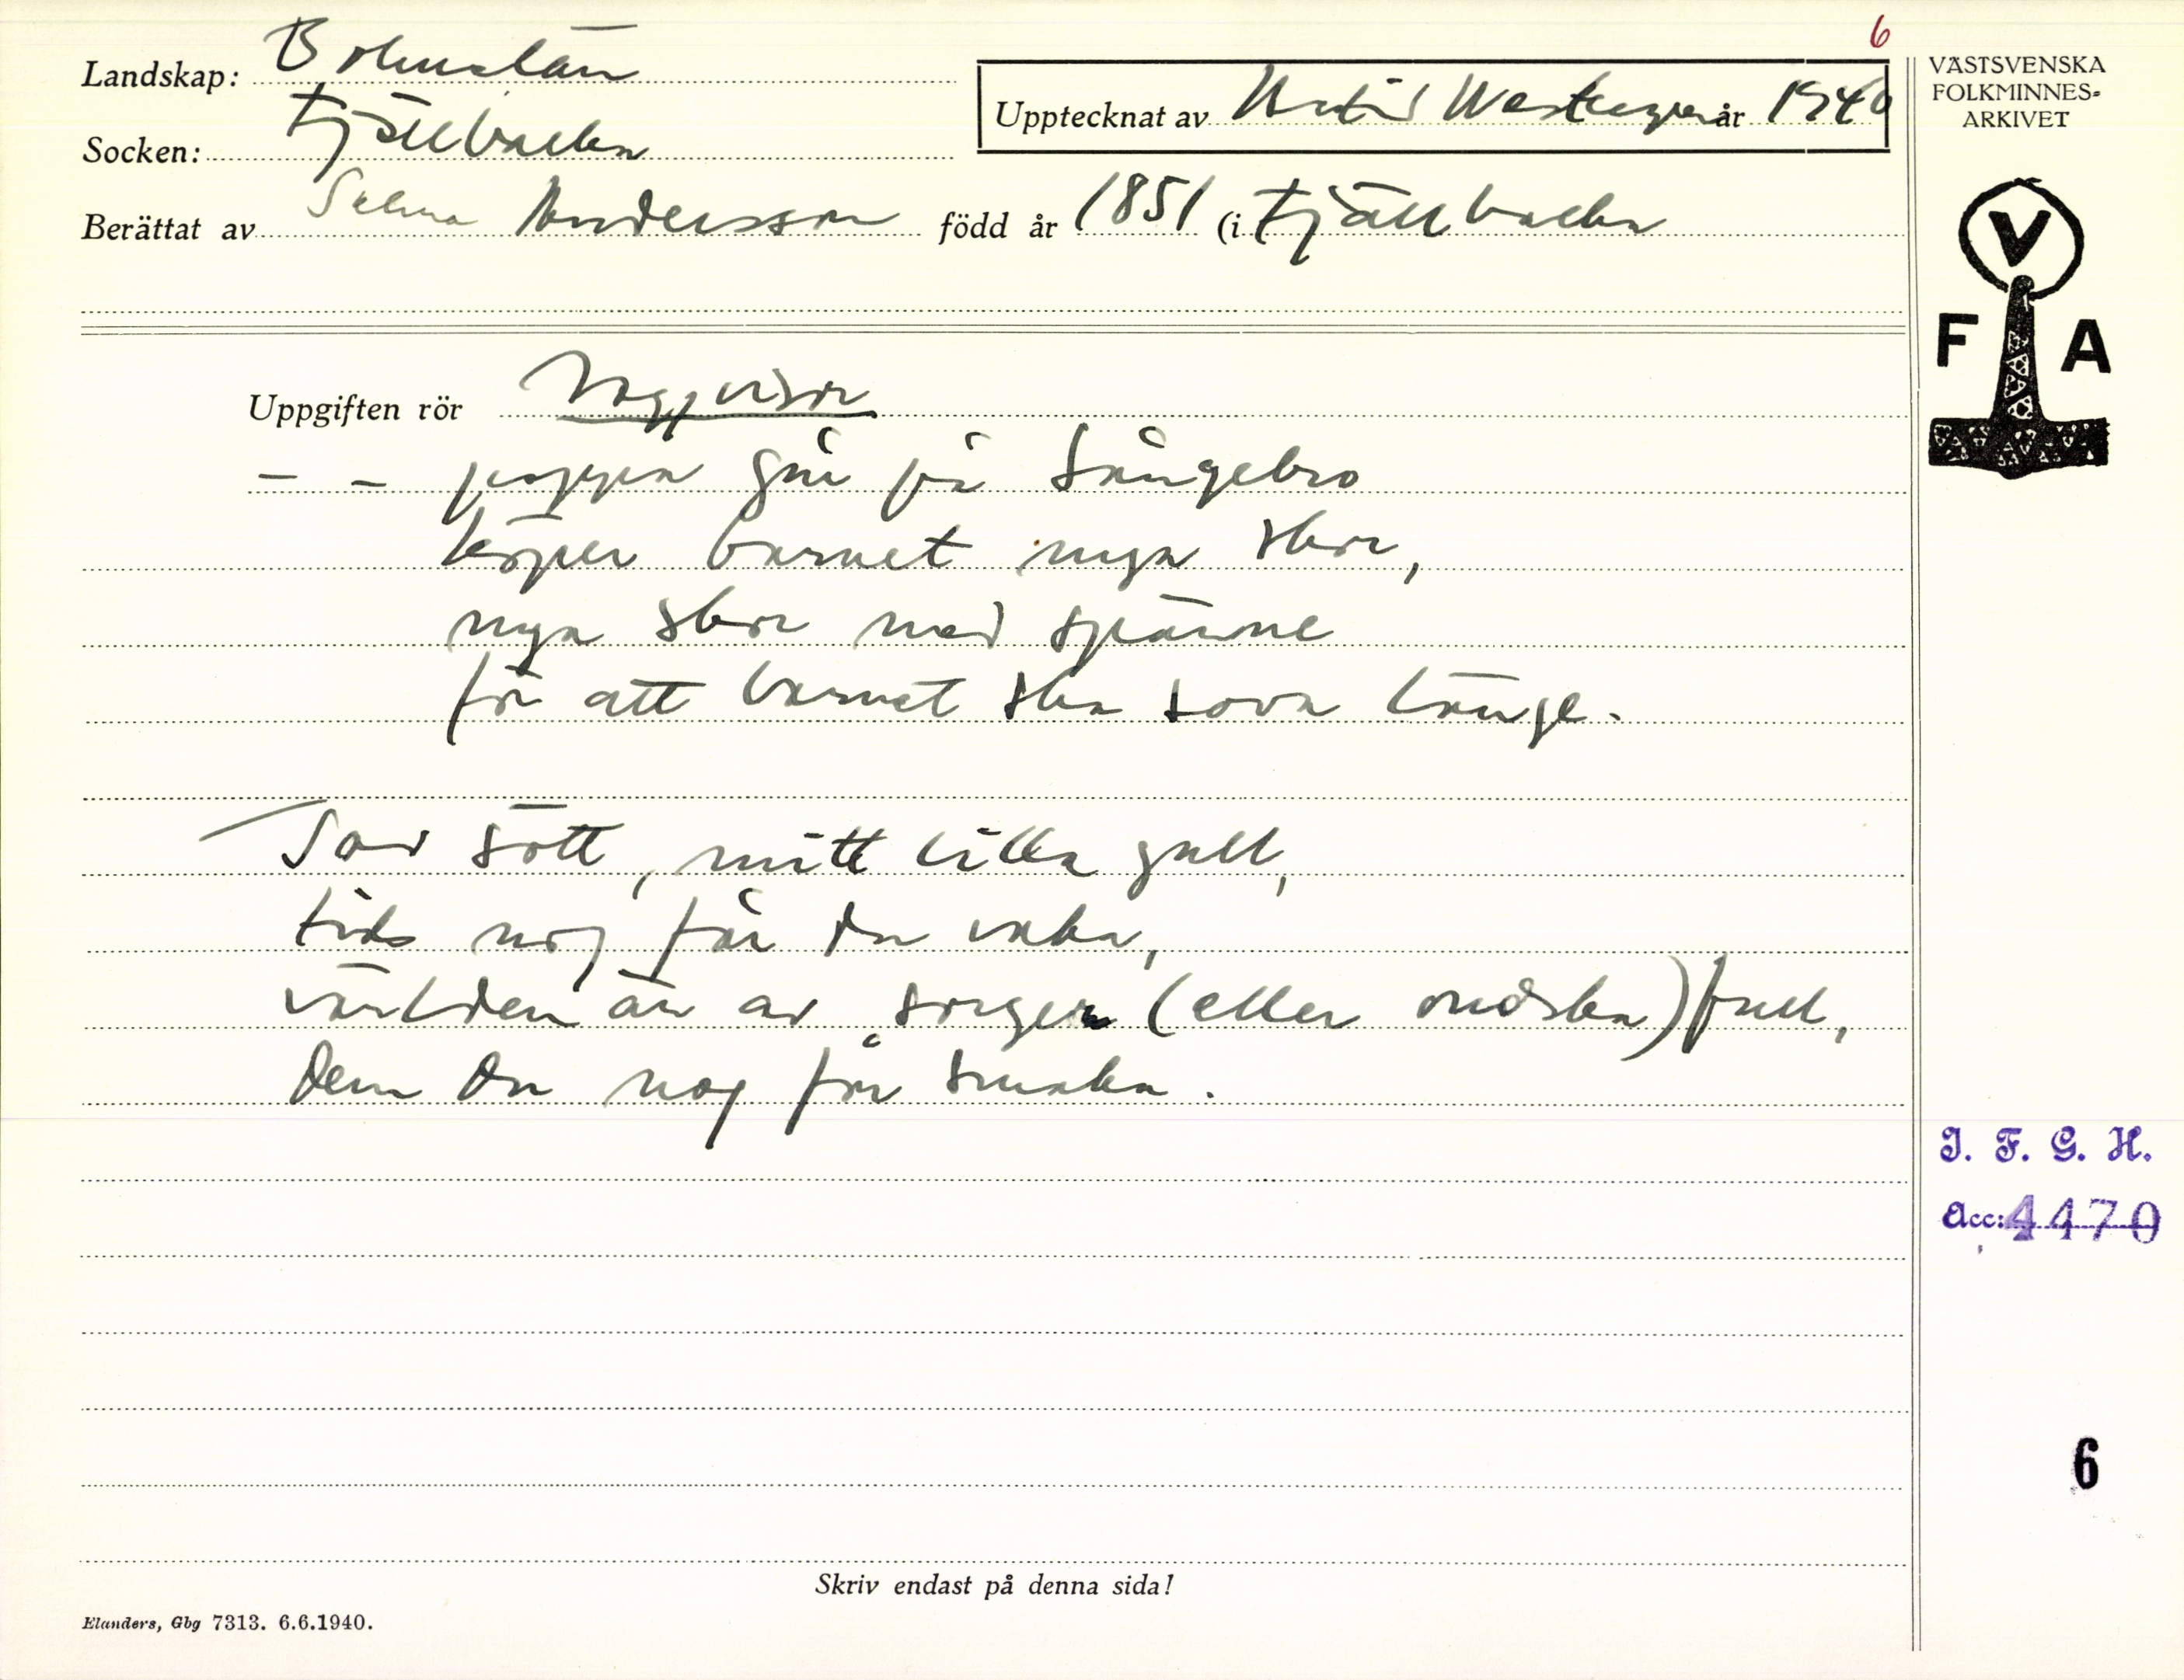 6
Landskap: Bohuslän
Socken: Fjällbacka
Upptecknat av Westergren år 1940
Berättat av Selma Andersson född år 1851 (i Fjällbacka
VÄSTSVENSKA
FOLKMINNES-
ARKIVET
V
F A
Uppgiften rör Vaggvisor
- - pappa går på Långebro
köper barnet nya skor,
nya skor med spänne
för att barnet ska sova länge.
Sov sött, mitt lilla gull,
tids nog får du vaka,
världen är av sorger (eller ondska) full,
dem du nog får smaka.
I. F. G. H.
Acc: 4470
6
Skriv endast på denna sida!
Elanders, Gbg 7313. 6.6.1940.